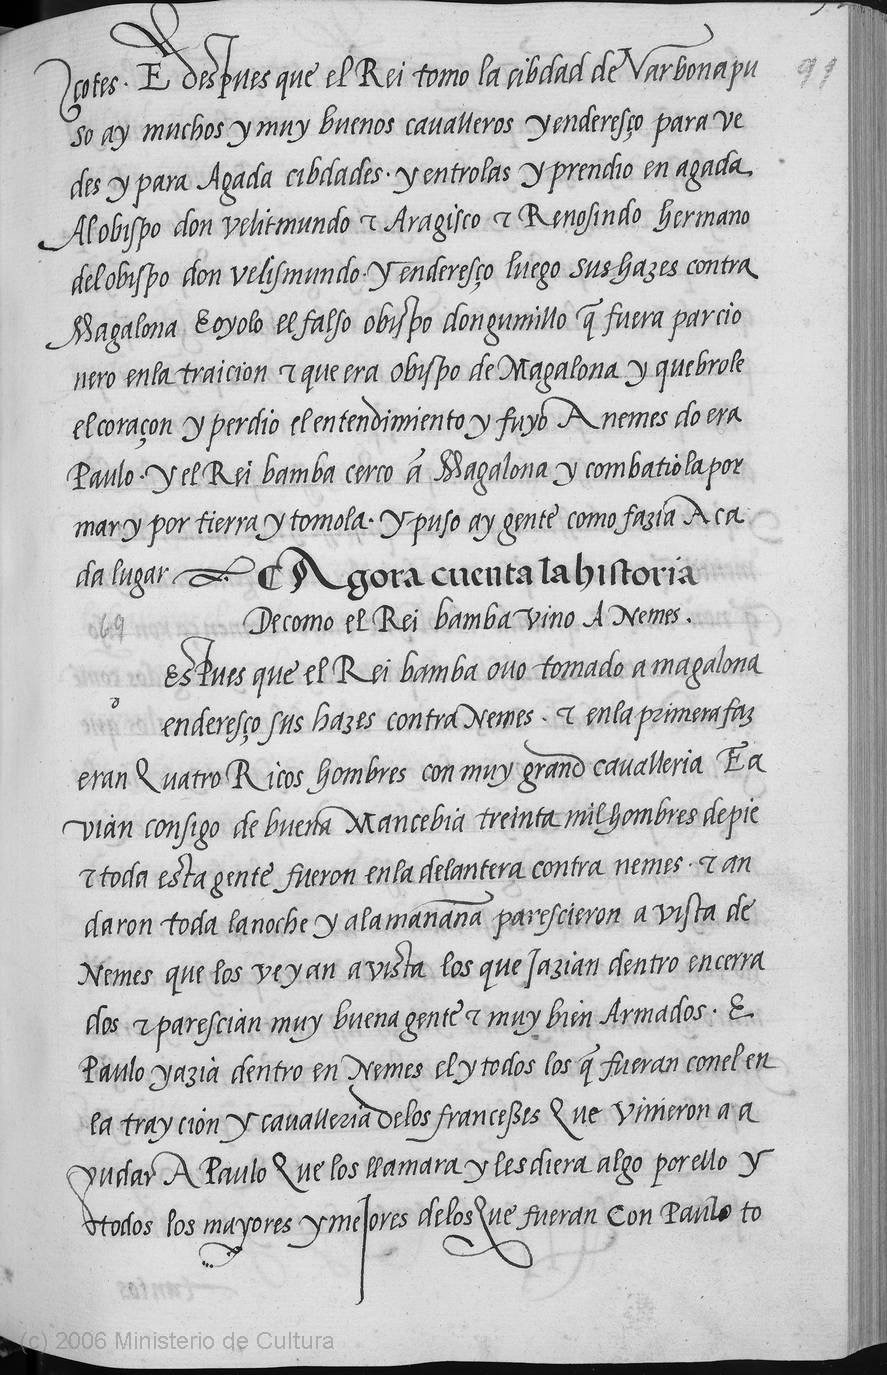 99
çotes. E despues que el Rei tomo la cibdad de Narbona pu
so ay muchos y muy buenos cavalleros y enderesço para ve
des y para Agada cibdades. y entrolas y prendio en agada
Al obispo don velitmundo τ Aragisco τ Renosindo hermano
del obispo don velismundo. Y enderesço luego sus hazes contra
Magalona E oyolo el falso obispo don gumillo q̃ fuera parcio
nero en la traicion τ que era obispo de Magalona y quebrole
el coraçon y perdio el entendimiento y fuyo A nemes do era
Paulo. Y el Rei bamba cerco a Magalona y combatiola por
mar y por tierra y tomola. Y puso ay gente como fazia A ca
da lugar ¶ Agora cuenta la historia
69
De como el Rei bamba vino A Nemes.
Espues que el Rei bamba ovo tomado a magalona
d
enderesço sus hazes contra Nemes. τ en la primera faz
eran Quatro Ricos hombres con muy grand cavalleria E a
vian consigo de buena Mancebia treinta mil hombres de pie
τ toda esta gente fueron en la delantera contra nemes. τ an
daron toda la noche y a la mañana parescieron a vista de
Nemes que los veyan a vista los que Jazian dentro encerra
dos τ parescian muy buena gente τ muy bien Armados. E
Paulo yazia dentro en Nemes el y todos los q̃ fueran con el en
la traycion y cavalleria de los franceses Que vinieron a a
yudar A Paulo Que los llamara y les diera algo por ello y
todos los mayores y meJores de los Que fueran Con Paulo to
(c) 2006 Ministerio de Cultura